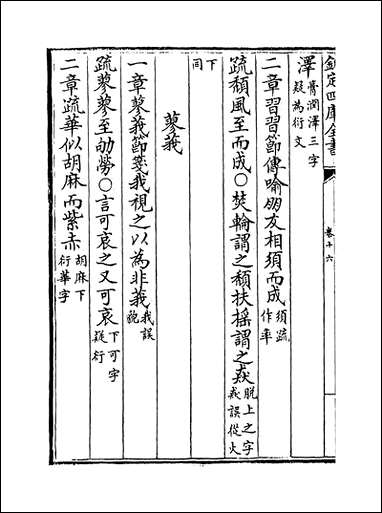 欽定四庫全書
卷十六
澤膏潤澤三字疑為衍文
二章習習節傳喻朋友相須而成須疏作率
疏頹風至而成○焚輪謂之頹扶搖謂之猋脫上之字猋誤從火
下同
蓼莪
一章蓼莪節箋我視之以為非莪我誤貌
疏蓼蓼至劬勞○言可哀之又可哀下可字疑衍
二章疏華似胡麻而紫赤胡麻下衍華字